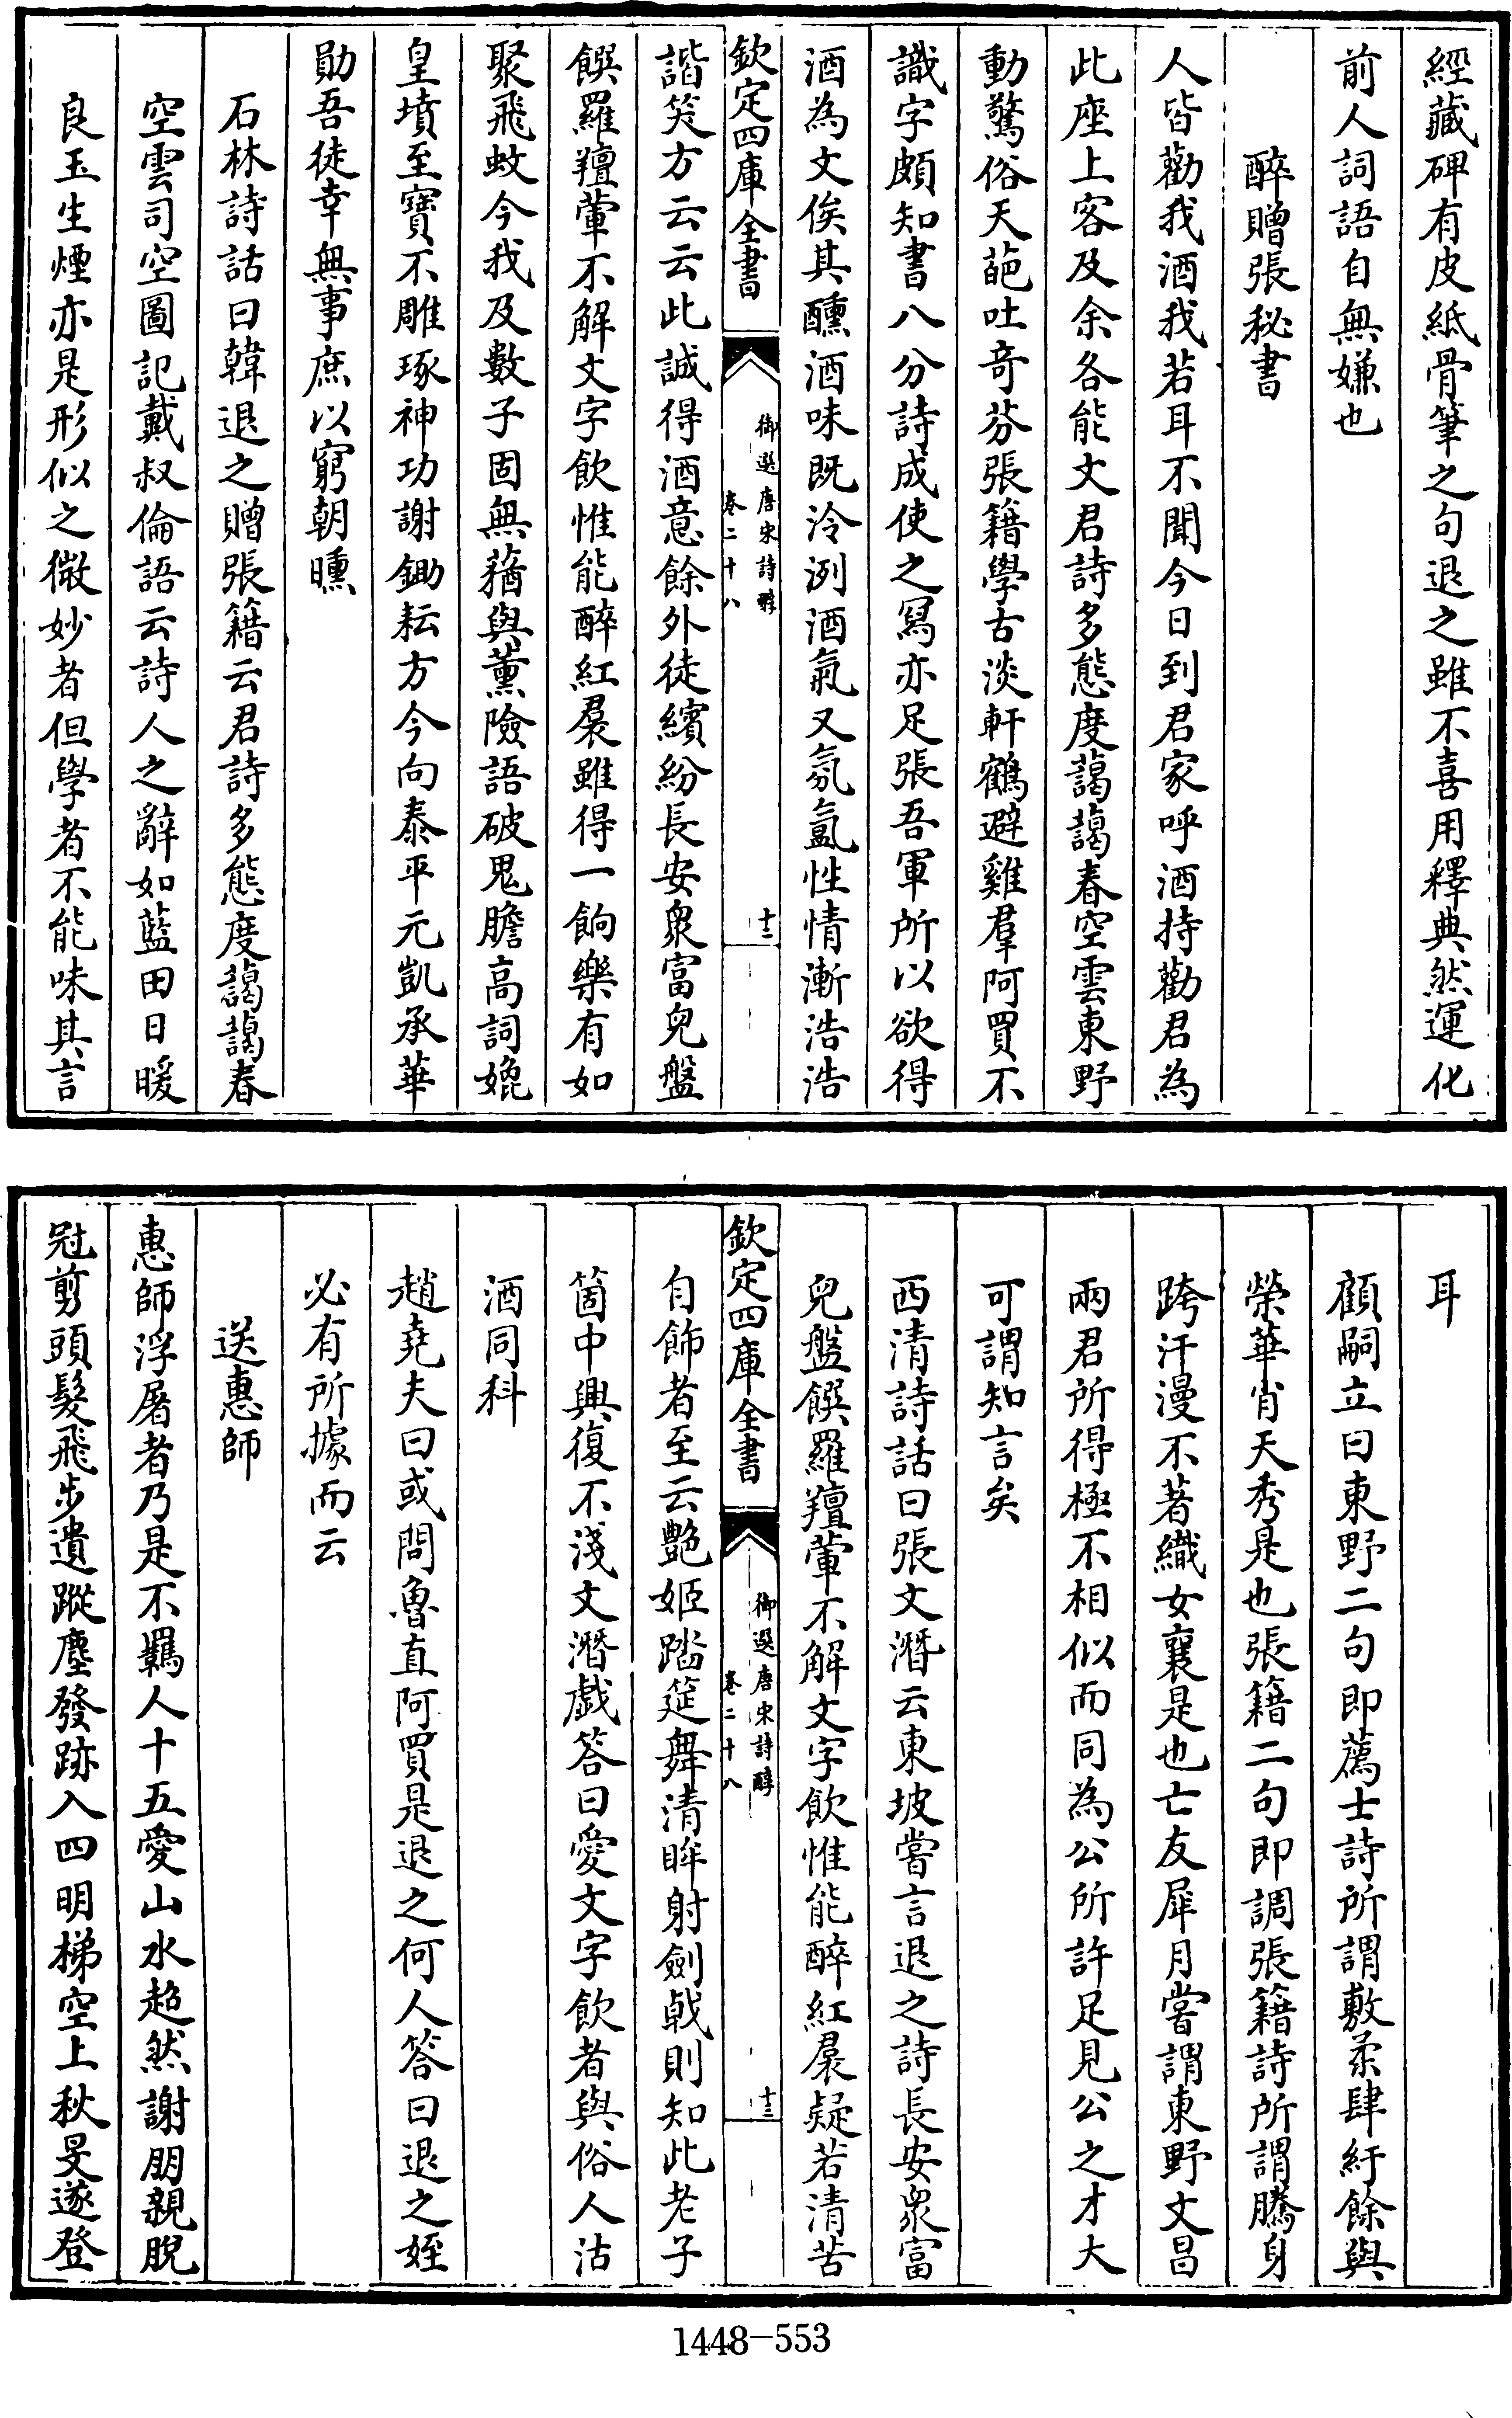 經藏碑有皮紙骨筆之句退之雖不喜用釋典然運化
前人詞語自無嫌也
醉贈張秘書
人皆勸我酒我若耳不聞今日到君家呼酒持勸君為
此座上客及余各能文君詩多態度藹藹春空雲東野
動驚俗天葩吐奇芬張籍學古淡軒鶴避雞羣阿買不
識字頗知書八分詩成使之冩亦足張吾軍所以欲得
酒為文俟其醺酒味既泠洌酒氣又氛氲性情漸浩浩
欽定四庫全書
御選唐宋詩醇
卷二十八
十二
諧笑方云云此誠得酒意餘外徒繽紛長安衆富兒盤
饌羅羶葷不解文字飲惟能醉紅裠雖得一餉樂有如
聚飛蚊今我及數子固無蕕與薰險語破鬼膽高詞媲
皇墳至寳不雕琢神功謝鋤耘方今向泰平元凱承華
勛吾徒幸無事庶以窮朝曛
石林詩話曰韓退之贈張籍云君詩多態度藹藹春
空雲司空圖記戴叔倫語云詩人之辭如藍田日暖
良玉生煙亦是形似之微妙者但學者不能味其言
耳
顧嗣立曰東野二句即薦士詩所謂敷柔肆紆餘與
榮華肖天秀是也張籍二句即調張籍詩所謂騰身
跨汗漫不著織女襄是也亡友犀月嘗謂東野文昌
兩君所得極不相似而同為公所許足見公之才大
可謂知言矣
西清詩話曰張文潛云東坡嘗言退之詩長安衆富
兒盤饌羅羶葷不解文字飲惟能醉紅裠疑若清苦
欽定四庫全書
御選唐宋詩醇
卷二十八
十三
自飾者至云艶姬踏筵舞清眸射劍戟則知此老子
箇中興復不淺文潛戲答曰愛文字飲者與俗人沽
酒同科
趙堯夫曰或問魯直阿買是退之何人答曰退之姪
必有所據而云
送惠師
惠師浮屠者乃是不羈人十五愛山水超然謝朋親脫
冠剪頭髮飛步遺蹤塵發跡入四明梯空上秋旻遂登
1448-553